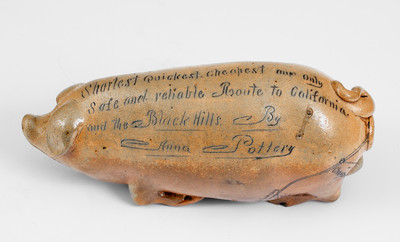 Shortest Quickest. Cheapest and Only
Safe and reliable Route to California
and the Black Hills By
Anna Pottery